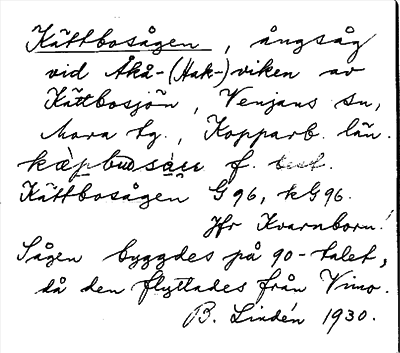 Kättbosågen, ångsåg
vid Åkå-(Hak-)viken av
Kättbosjön, Venjans sn,
Mora tg., Kopparb. län.
f. best.
Kättbosågen G96, kG96.
Jfr Kvarnborn!
Sågen byggdes på 90-talet,
då den flyttades från Vimo.
B. Lindén 1930.